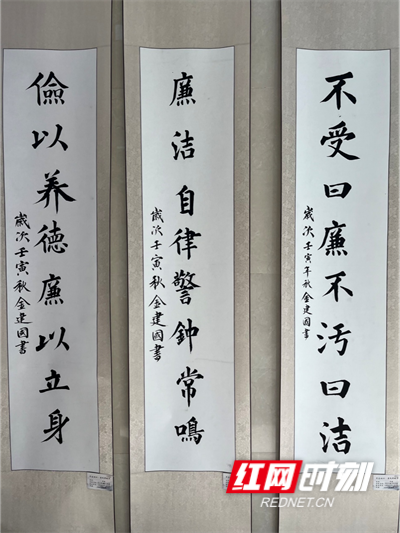 不受曰廉不污曰洁
岁次壬寅年秋金建国书
廉洁自律警钟常鸣
岁次壬寅秋金建国书
俭以养德廉以立身
岁次壬寅秋金建国书
红网时刻
REDNET.CN